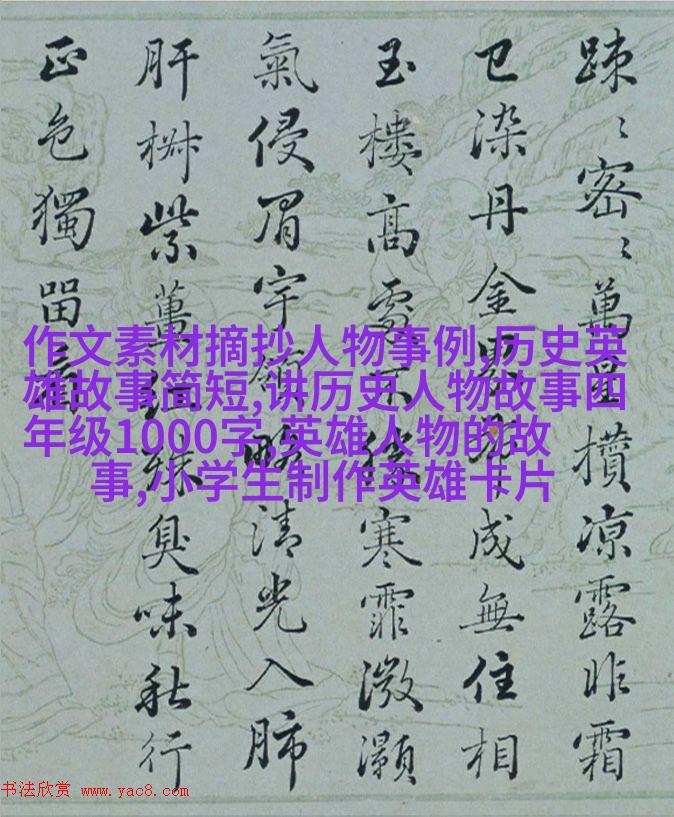 踈〻密〻萬攢凉露昨霜
已染丹金成無住相
玉樓高處不寒霏微灝
氣侵眉宇領略清光入肺
肝樹紫萬臭味秋行
正色獨留
作文素材摘抄人物事例,历史英
雄故事简短,讲历史人物故事四
年级1000字,英雄人物的故
事,小学生制作英雄卡片
书法欣赏 www.yac8.com